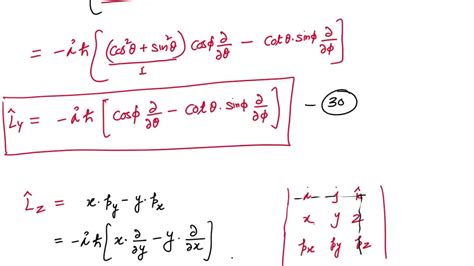 = -iħ[ (cos²θ + sin²θ) cosϕ ∂/∂θ - cotθ. sinϕ ∂/∂ϕ ]
1
L̂y = -iħ [ cosϕ ∂/∂θ - cotθ. sinϕ ∂/∂ϕ ] - 30
L̂z = x. py - y. px
= -iħ[ x. ∂/∂y - y. ∂/∂x ]
i j k̂
x y z
px py pz